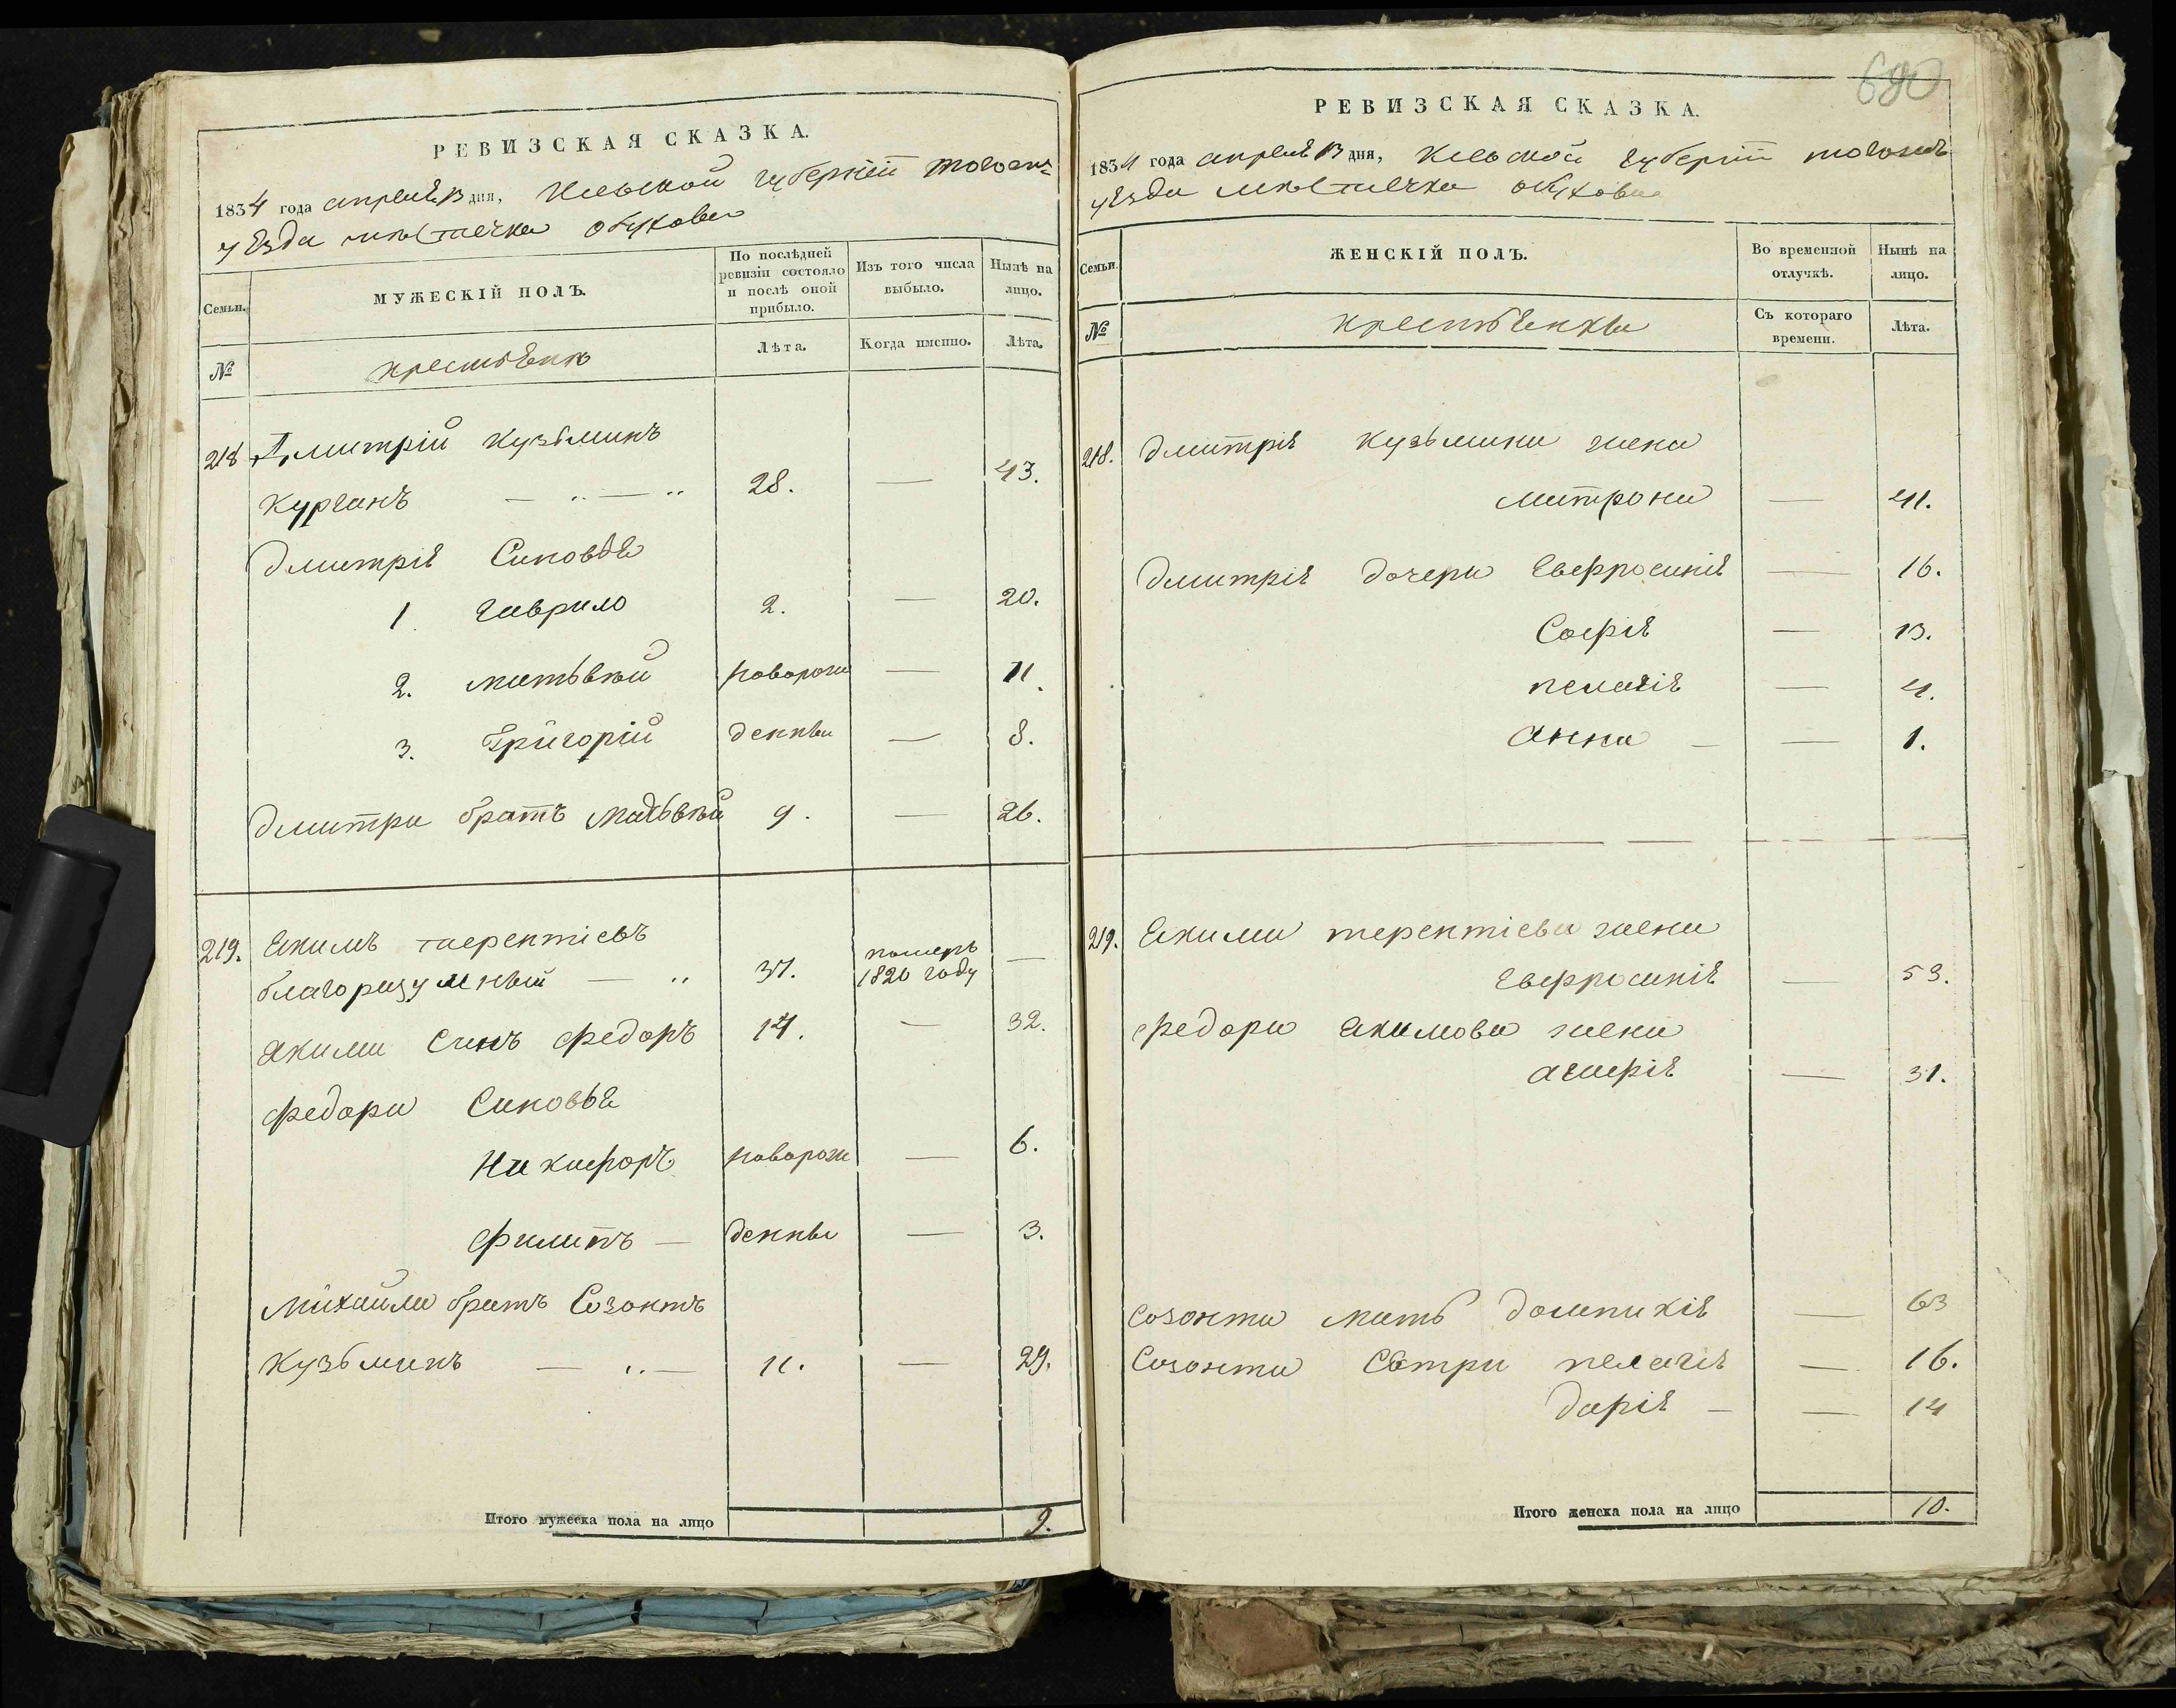 РЕВИЗСКАЯ СКАЗКА.
1834 года апреля 13 дня, Киевской губернии тогожъ
уѣзда мѣстечка обухова
Семьи.
МУЖЕСКІЙ ПОЛЪ.
По послѣдней ревизіи состояло и послѣ оной прибыло.
Изъ того числа выбыло.
Нынѣ на лицо.
№
крестьяне
Лѣта.
Когда именно.
Лѣта.
218 Дмитрій Кузьминъ
Курганъ 28. — 43.
Дмитрія Синовья
1 Гаврило 2. — 20.
2. матьвѣй новорож — 11.
3. Григорій денны — 8.
Дмитри братъ матьвѣй 9. — 26.
219. Якимъ терентіевъ
благоразумный — 37. померъ 1820 году —
якима синъ федоръ 14. — 32.
федора Синовья
Никифоръ новорож — 6.
филипъ — денны — 3.
михайла братъ Созонтъ
Кузьминъ — 11. — 29.
Итого мужеска пола на лицо 9.
690
РЕВИЗСКАЯ СКАЗКА.
1834 года апреля 13 дня, Киевской губерніи тогожъ
уѣзда мѣстечка обухова
Семьи.
ЖЕНСКІЙ ПОЛЪ.
Во временной отлучкѣ.
Нынѣ на лицо.
№
крестьянки
Съ котораго времени.
Лѣта.
218. Дмитрія Кузьмина жена
матрона — 41.
Дмитрія дочери Евфросинія — 16.
Софія — 13.
пелагія — 4.
анна — — 1.
219. Якима терентіева жена
Евфросинія — 53.
федора якимова жена
агафія — 31.
Созонта мать домникія — 63
Созонта Сѣтри пелагія — 16.
дарія — — 14
Итого женска пола на лицо 10.